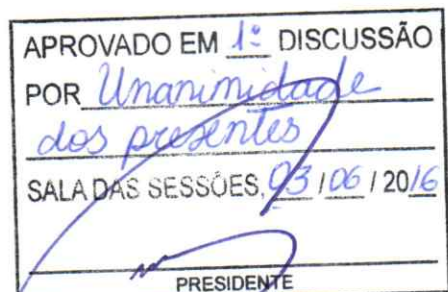 APROVADO EM 1ª DISCUSSÃO
POR Unanimidade
dos presentes
SALA DAS SESSÕES, 03 / 06 / 2016
PRESIDENTE